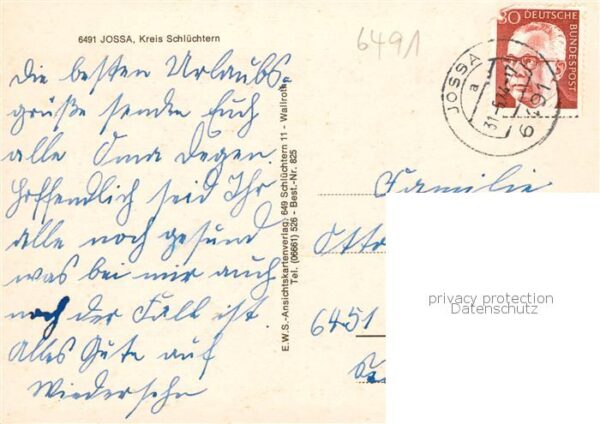 6491 JOSSA, Kreis Schlüchtern
6491
Die besten Urlaubs-
grüße sendet Euch
alle Oma Degen.
Hoffendlich seid Ihr
alle noch gesund
was bei mir auch
noch der Fall ist.
Alles Gute auf
Wiedersehn
E.W.S.-Ansichtskartenverlag, 649 Schlüchtern 11 - Wallroth
Tel. (06661) 526 - Best.-Nr. 825
30 DEUTSCHE
BUNDESPOST
JOSSA
a
6491
Familie
Otto
6451
privacy protection
Datenschutz